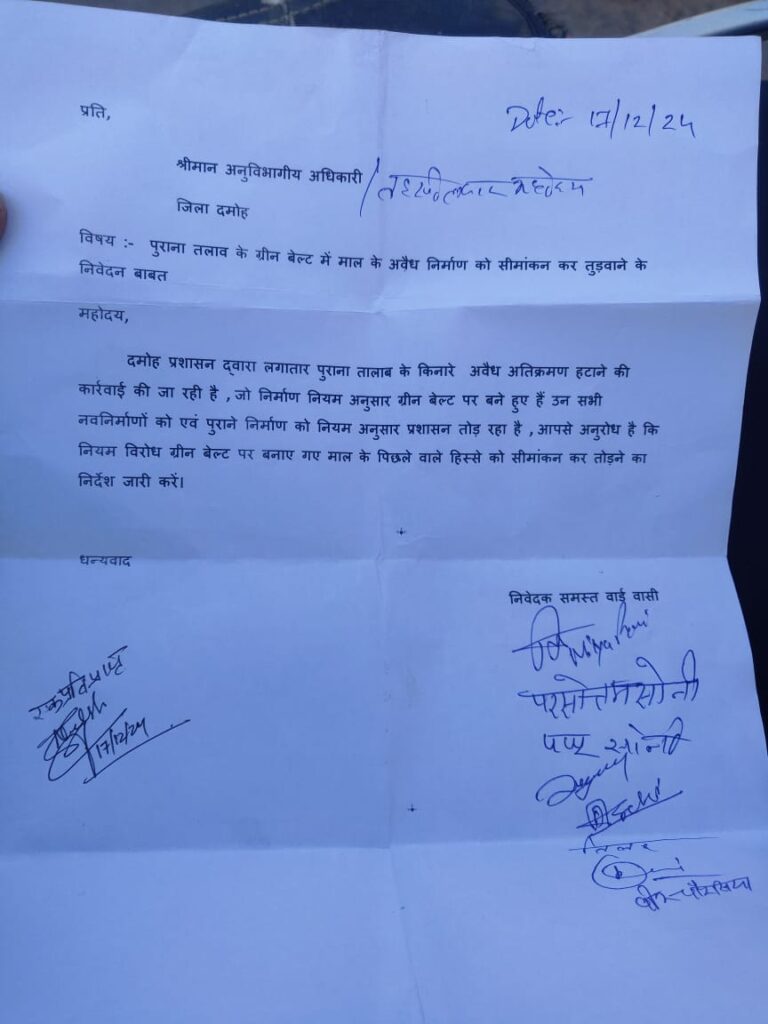 प्रति,
Date:- 17/12/24
श्रीमान अनुविभागीय अधिकारी / तहसीलदार महोदय
जिला दमोह
विषय :- पुराना तलाव के ग्रीन बेल्ट में माल के अवैध निर्माण को सीमांकन कर तुड़वाने के
निवेदन बाबत
महोदय,
दमोह प्रशासन द्वारा लगातार पुराना तालाब के किनारे अवैध अतिक्रमण हटाने की
कार्रवाई की जा रही है ,जो निर्माण नियम अनुसार ग्रीन बेल्ट पर बने हुए हैं उन सभी
नवनिर्माणों को एवं पुराने निर्माण को नियम अनुसार प्रशासन तोड़ रहा है ,आपसे अनुरोध है कि
नियम विरोध ग्रीन बेल्ट पर बनाए गए माल के पिछले वाले हिस्से को सीमांकन कर तोड़ने का
निर्देश जारी करें।
धन्यवाद
निवेदक समस्त वार्ड वासी
परसोत्तम सोनी
पप्पू सोनी
17/12/24